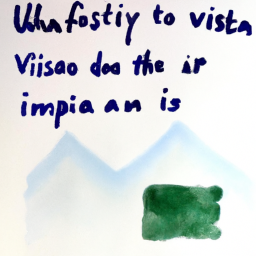 Uhafostiy to vista
Viisao doo the ir
impia an is